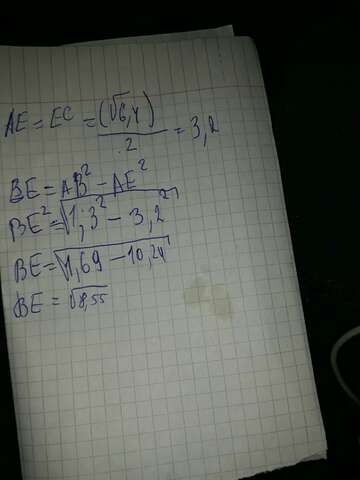 AE = EC = (√6,4) / 2 = 3,2
BE = AB² - AE²
BE² = √1,3² - 3,2²
BE = √1,69 - 10,24
BE = √8,55